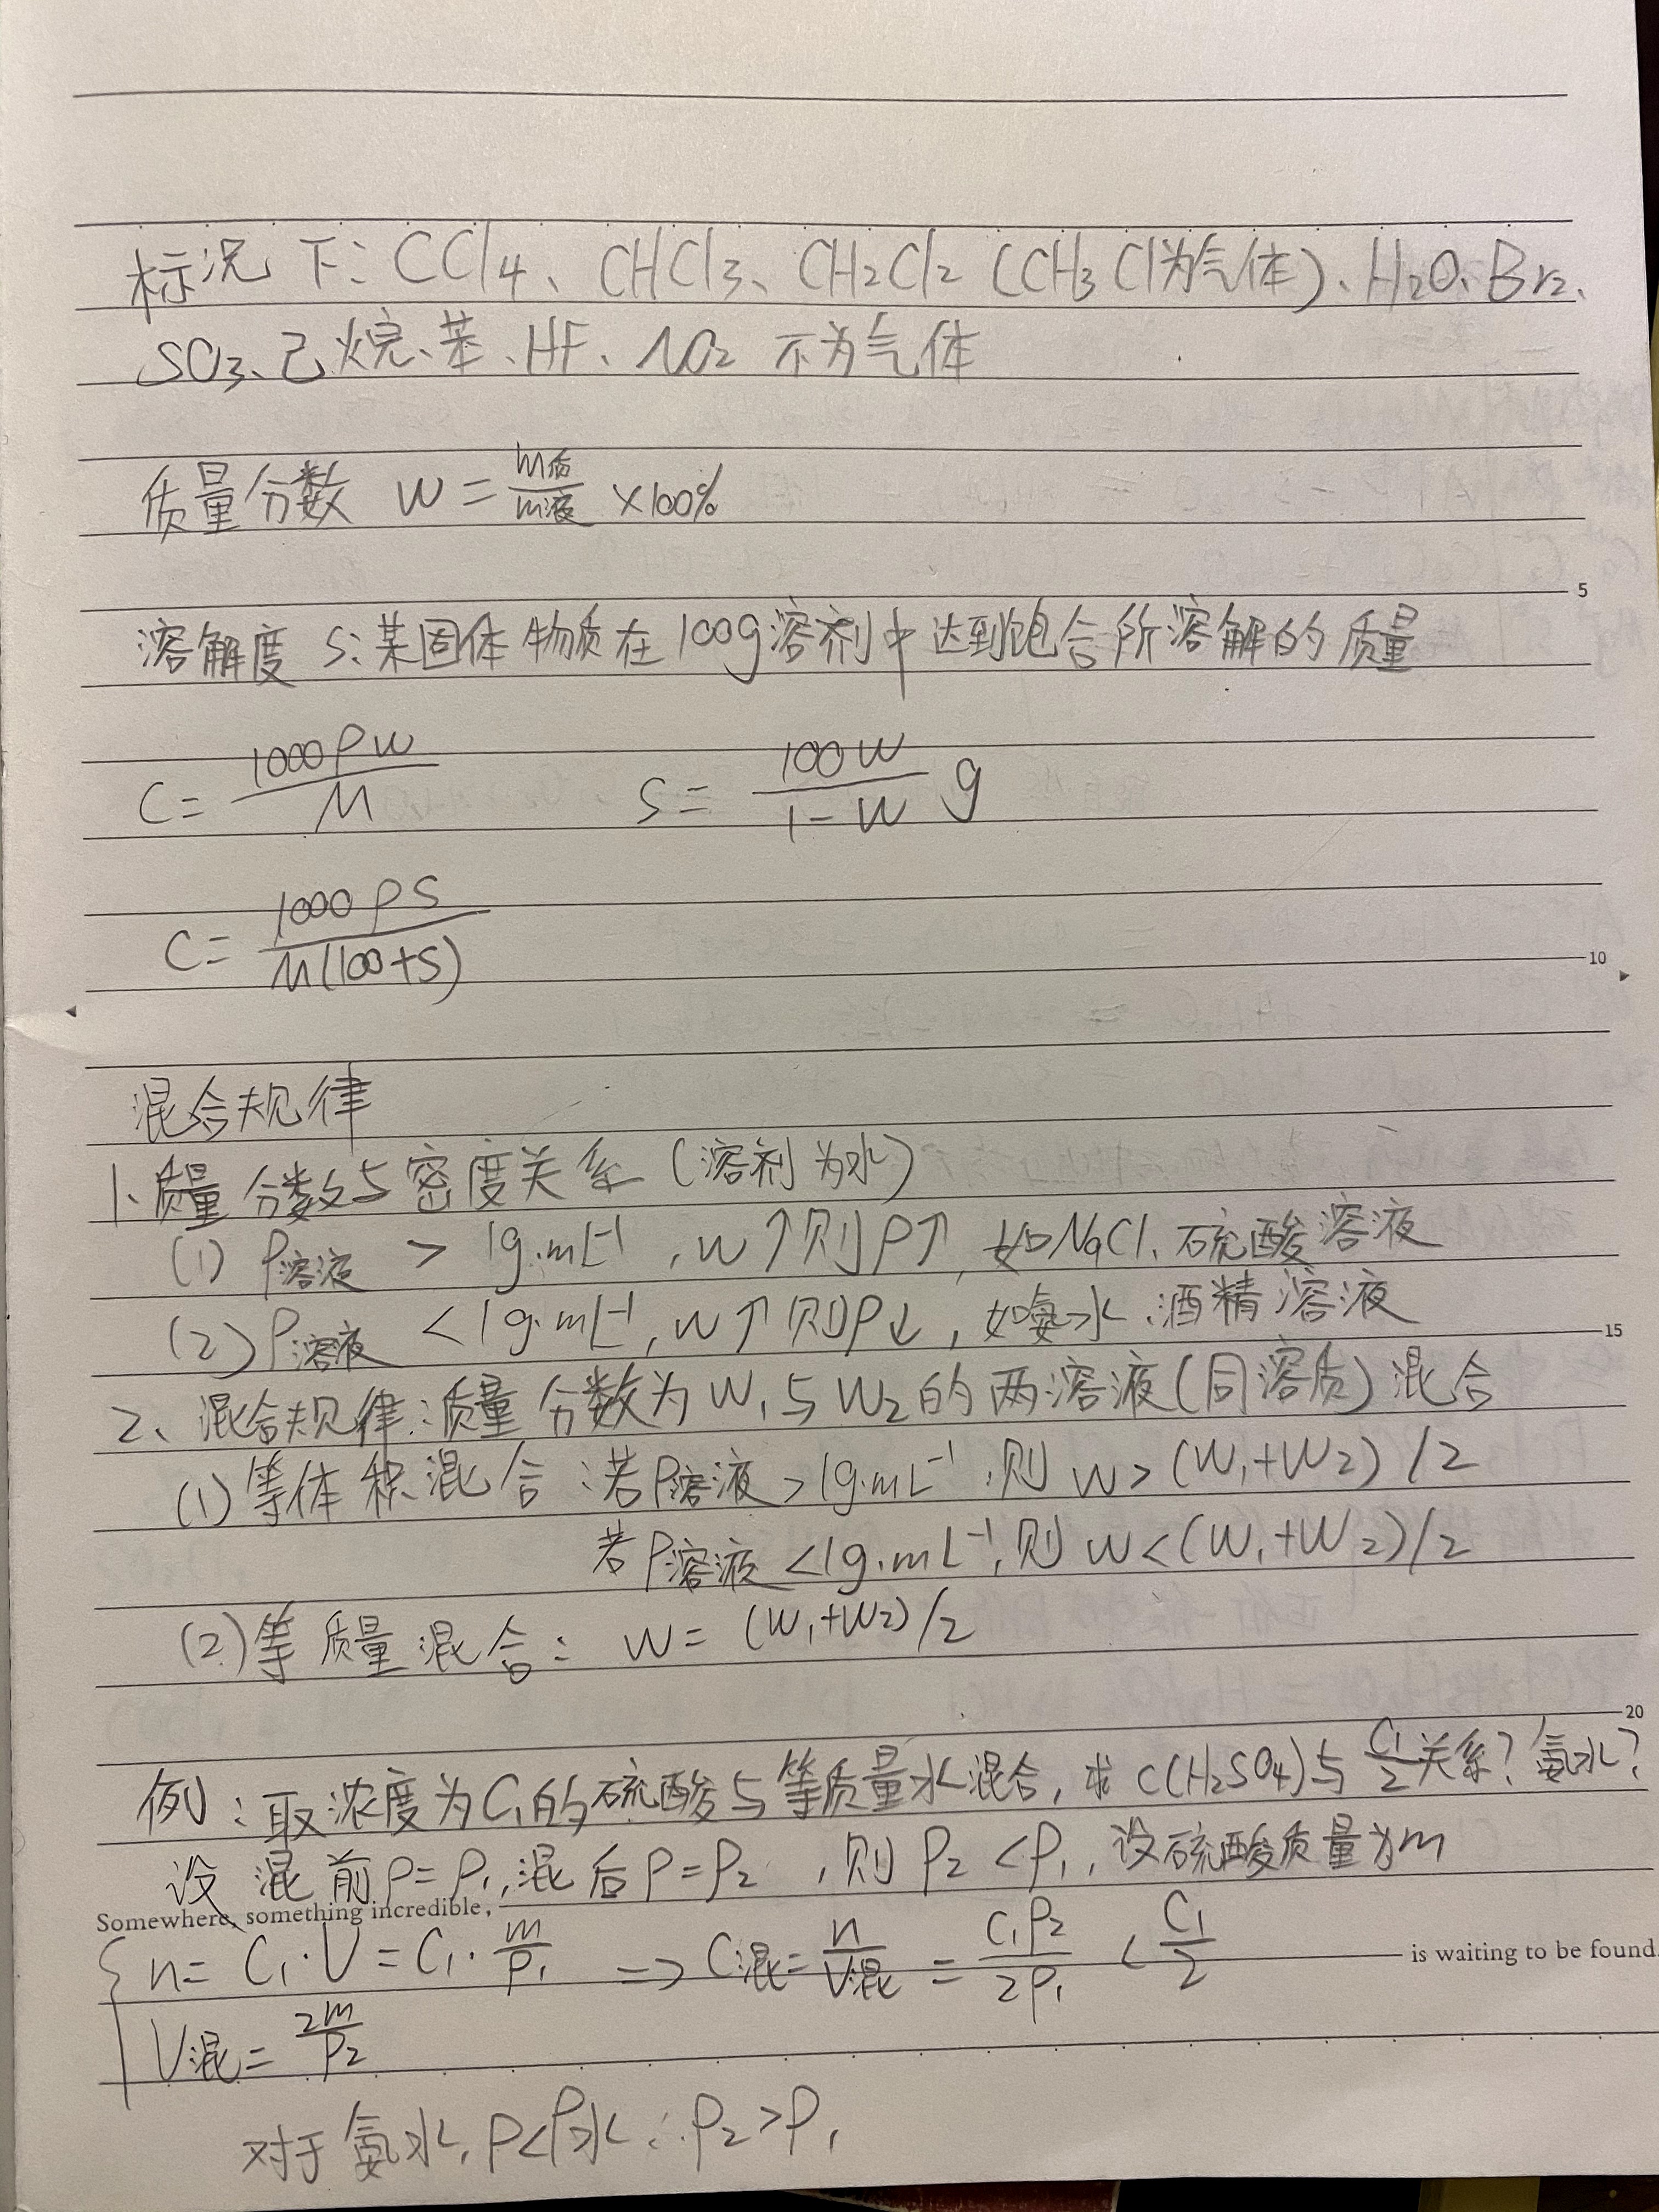 标况下：CCl4、CHCl3、CH2Cl2（CH3Cl为气体）、H2O、Br2、
SO3、己烷、苯、HF、NO2 不为气体
质量分数 w = m质/m液 ×100%
5
溶解度 S：某固体物质在100g溶剂中达到饱合所溶解的质量
C = 1000ρw/M S = 100w/(1-w) g
C = 1000ρS/M(100+S)
10
混合规律
1、质量分数与密度关系（溶剂为水）
(1) ρ溶液 > 1g·mL⁻¹，w↑则ρ↑，如NaCl、硫酸溶液
(2) ρ溶液 < 1g·mL⁻¹，w↑则ρ↓，如氨水、酒精溶液
15
2、混合规律：质量分数为w1与w2的两溶液（同溶质）混合
(1) 等体积混合：若ρ溶液>1g·mL⁻¹，则 w>(w1+w2)/2
若ρ溶液<1g·mL⁻¹，则 w<(w1+w2)/2
(2) 等质量混合：w=(w1+w2)/2
20
例：取浓度为C1的硫酸与等质量水混合，求c(H2SO4)与C1/2关系？氨水？
设混前ρ=ρ1，混后ρ=ρ2，则ρ2<ρ1，设硫酸质量为m
Somewhere, something incredible,
{ n = C1·V = C1·m/ρ1 => C混 = n/V混 = C1ρ2/2ρ1 < C1/2
is waiting to be found
V混 = 2m/ρ2
对于氨水，ρ<ρ水 ∴ρ2>ρ1